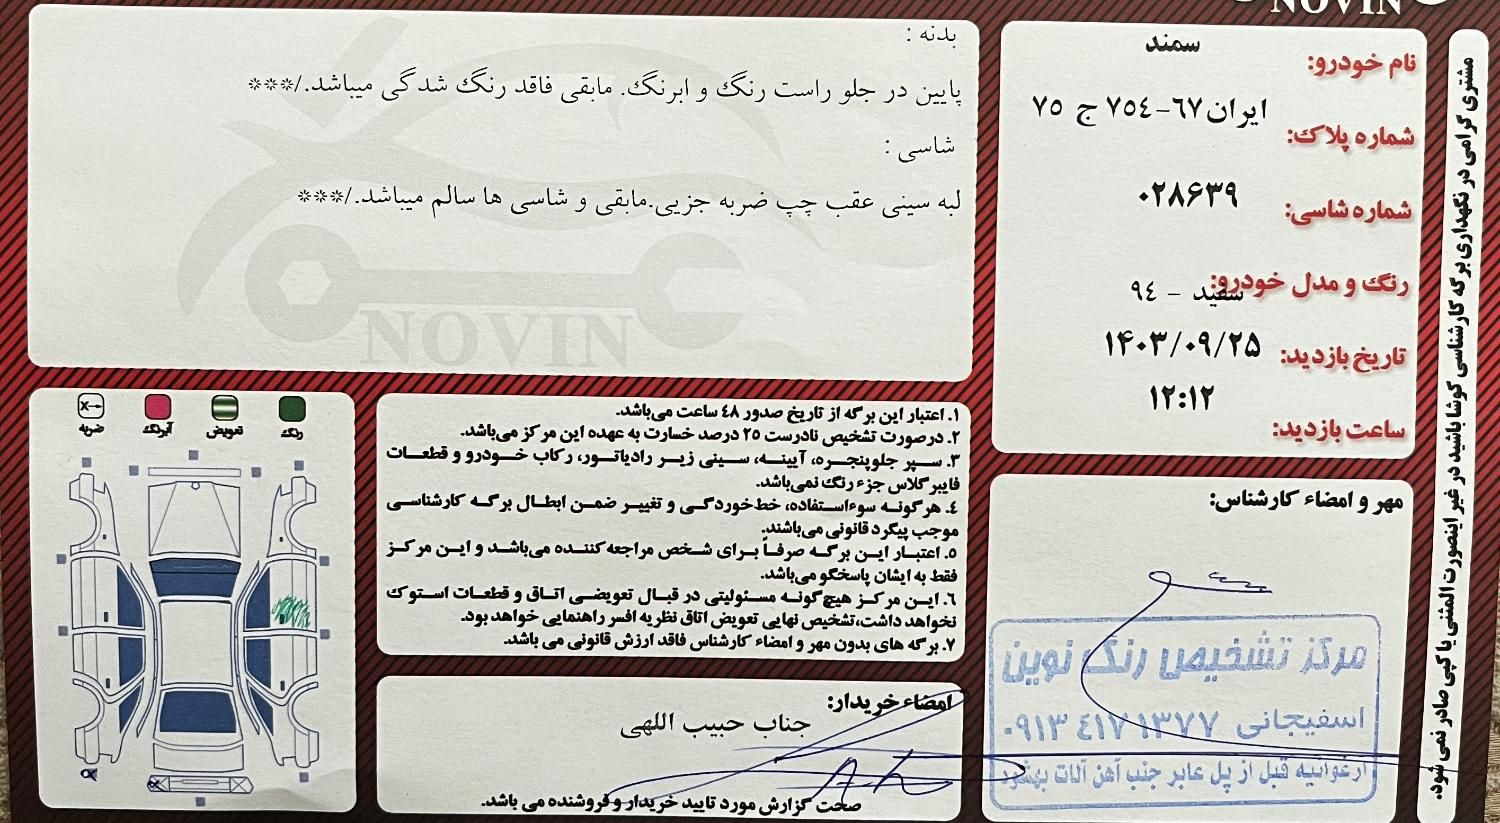 NOVIN
نام خودرو: سمند
شماره پلاک: ایران ۶۷-۷۵٤ ج ۷۵
شماره شاسی: ۰۲۸۶۳۹
رنگ و مدل خودرو: سفید - ۹٤
تاریخ بازدید: ۱۴۰۳/۰۹/۲۵
ساعت بازدید: ۱۲:۱۲
بدنه :
پایین در جلو راست رنگ و ابرنگ. مابقی فاقد رنگ شدگی میباشد./***
شاسی :
لبه سینی عقب چپ ضربه جزیی.مابقی و شاسی ها سالم میباشد./***
NOVIN
رنگ
تعویض
آبرنگ
ضربه
X
۱. اعتبار این برگه از تاریخ صدور ٤۸ ساعت می‌باشد.
۲. درصورت تشخیص نادرست ۲۵ درصد خسارت به عهده این مرکز می‌باشد.
۳. سپر جلوپنجره، آیینه، سینی زیر رادیاتور، رکاب خودرو و قطعات
فایبرگلاس جزء رنگ نمی‌باشد.
٤. هرگونه سوءاستفاده، خط‌خوردگی و تغییر ضمن ابطال برگه کارشناسی
موجب پیگرد قانونی می‌باشند.
۵. اعتبار این برگه صرفاً برای شخص مراجعه‌کننده می‌باشد و این مرکز
فقط به ایشان پاسخگو می‌باشد.
۶. این مرکز هیچ‌گونه مسئولیتی در قبال تعویضی اتاق و قطعات استوک
نخواهد داشت،تشخیص نهایی تعویض اتاق نظریه افسر راهنمایی خواهد بود.
۷. برگه های بدون مهر و امضاء کارشناس فاقد ارزش قانونی می باشد.
امضاء خریدار:
جناب حبیب اللهی
صحت گزارش مورد تایید خریدار و فروشنده می باشد.
مهر و امضاء کارشناس:
مرکز تشخیص رنگ نوین
اسفیجانی ۰۹۱۳ ٤۱۷ ۱۳۷۷
ارغوانیه قبل از پل عابر جنب آهن آلات بهشود
مشتری گرامی در نگهداری برگه کارشناسی کوشا باشید در غیر اینصورت المثنی یا کپی صادر نمی شود.